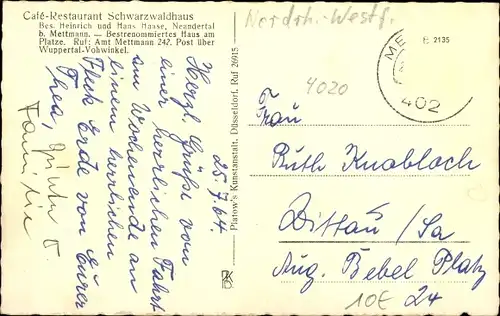 Café-Restaurant Schwarzwaldhaus
Bes. Heinrich und Hans Haase, Neandertal
b. Mettmann. — Bestrenommiertes Haus am
Platze. Ruf: Amt Mettmann 242. Post über
Wuppertal-Vohwinkel.
Nordrh.-Westf.
E 2135
ME
402
4020
25.7.64.
Herzl. Grüße von
einer herrlichen Fahrt
am Wochenende an
einem herrlichen
Fleck Erde von Eurer
Thea,
Familie
Platow's Kunstanstalt, Düsseldorf. Ruf 26915
Frau
Ruth Knobloch
Zittau / Sa
Aug. Bebel Platz
24
10E